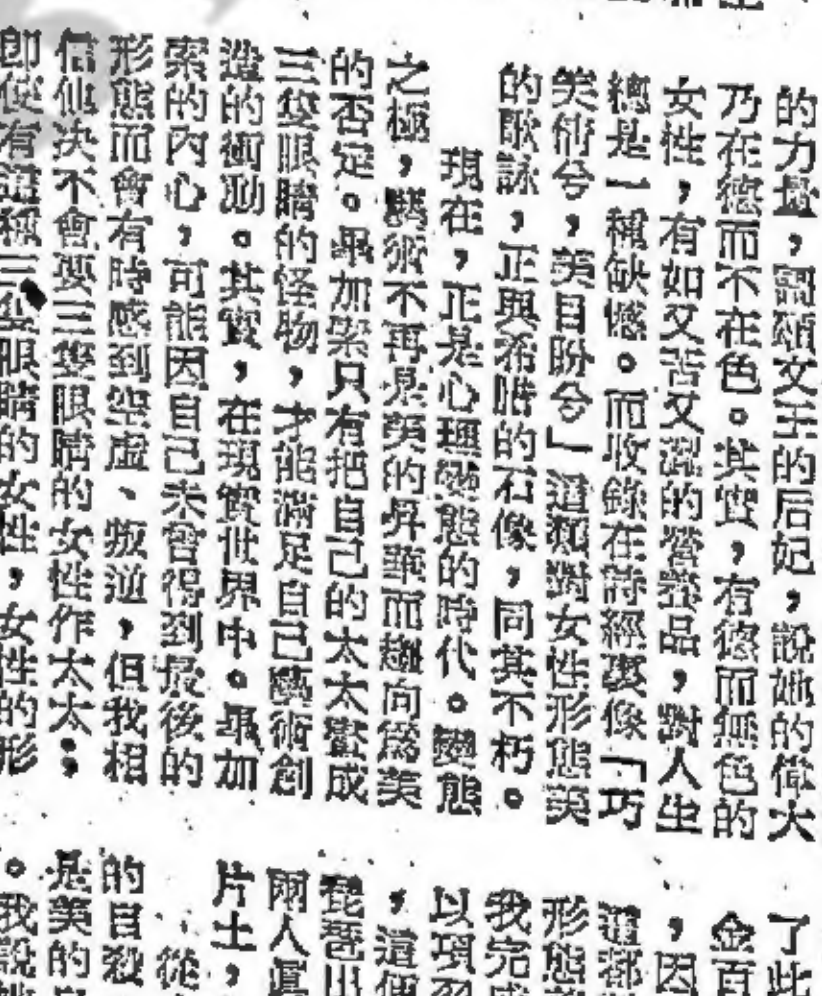 的力量,謌頌文王的后妃,說她的偉大
乃在德而不在色。其實,有德而無色的
女性,有如又苦又澀的營養品,對人生
總是一種缺憾。而收錄在詩經裏像「巧
笑倩兮,美目盼兮」這類對女性形態美
的歌詠,正與希臘的石像,同其不朽。
現在,正是心理變態的時代。變態
之極,藝術不再是美的昇華而趨向為美
的否定。畢加索只有把自己的太太畫成
三隻眼睛的怪物,才能滿足自己藝術創
造的衝動。其實,在現實世界中。畢加
索的內心,可能因自己未曾得到最後的
形態而會有時感到空虛、叛逆,但我相
信他決不會要三隻眼睛的女性作太太;
即使有這種三隻眼睛的女性,女性的形
了此
金百
,因
這都
形態
我完
以項
,這
琵琶出
兩人真
片土,
從
的自殺
是美的
。我說她